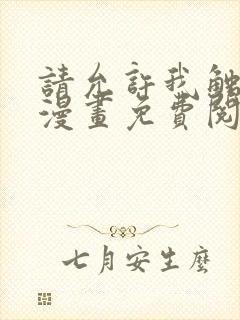 請允許我觸
漫畫免費閱
七月安生麼